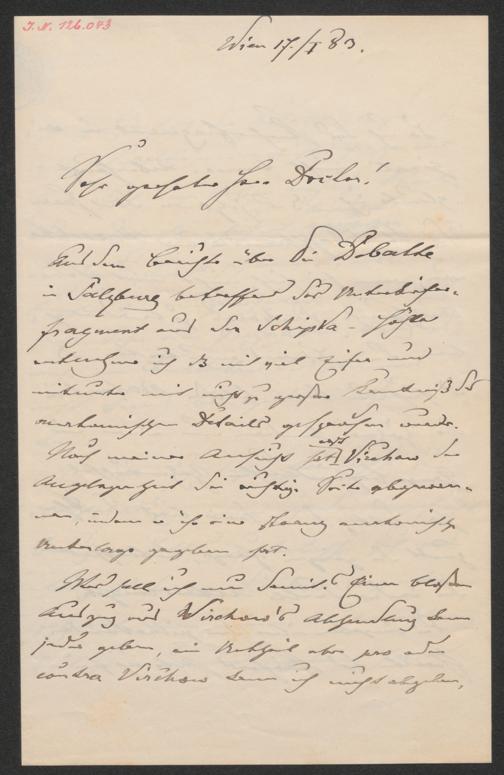 J. N. 126.083
Wien 17./I 83.
Sehr geehrter Herr Doctor!
Aus dem Berichte über die Debatte
in Salzburg betreffend das Unterkiefer-
fragment aus der Schipka-Höhle
entnehme ich daß mit viel Eifer und
mitunter mit nicht zu großer Kenntniß der
anatomischen Details gesprochen wurde.
Nach meiner Ansicht hat erst Virchow der
Angelegenheit die richtige Seite abgewon-
nen, indem er ihr eine streng anatomische
Unterlage gegeben hat.
Was soll ich nun damit? Einen bloßen
Auszug aus Virchow's Abhandlung kann
jeder geben, ein Urtheil aber pro oder
contra Virchow kann ich nicht abgeben,